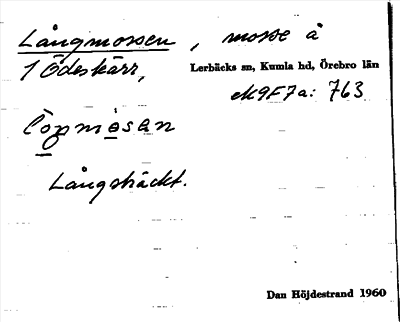 Långmossen, mosse å
1 Ödeskärr,
Lerbäcks sn, Kumla hd, Örebro län
M9F7a: 763
Långsträckt.
Dan Höjdestrand 1960